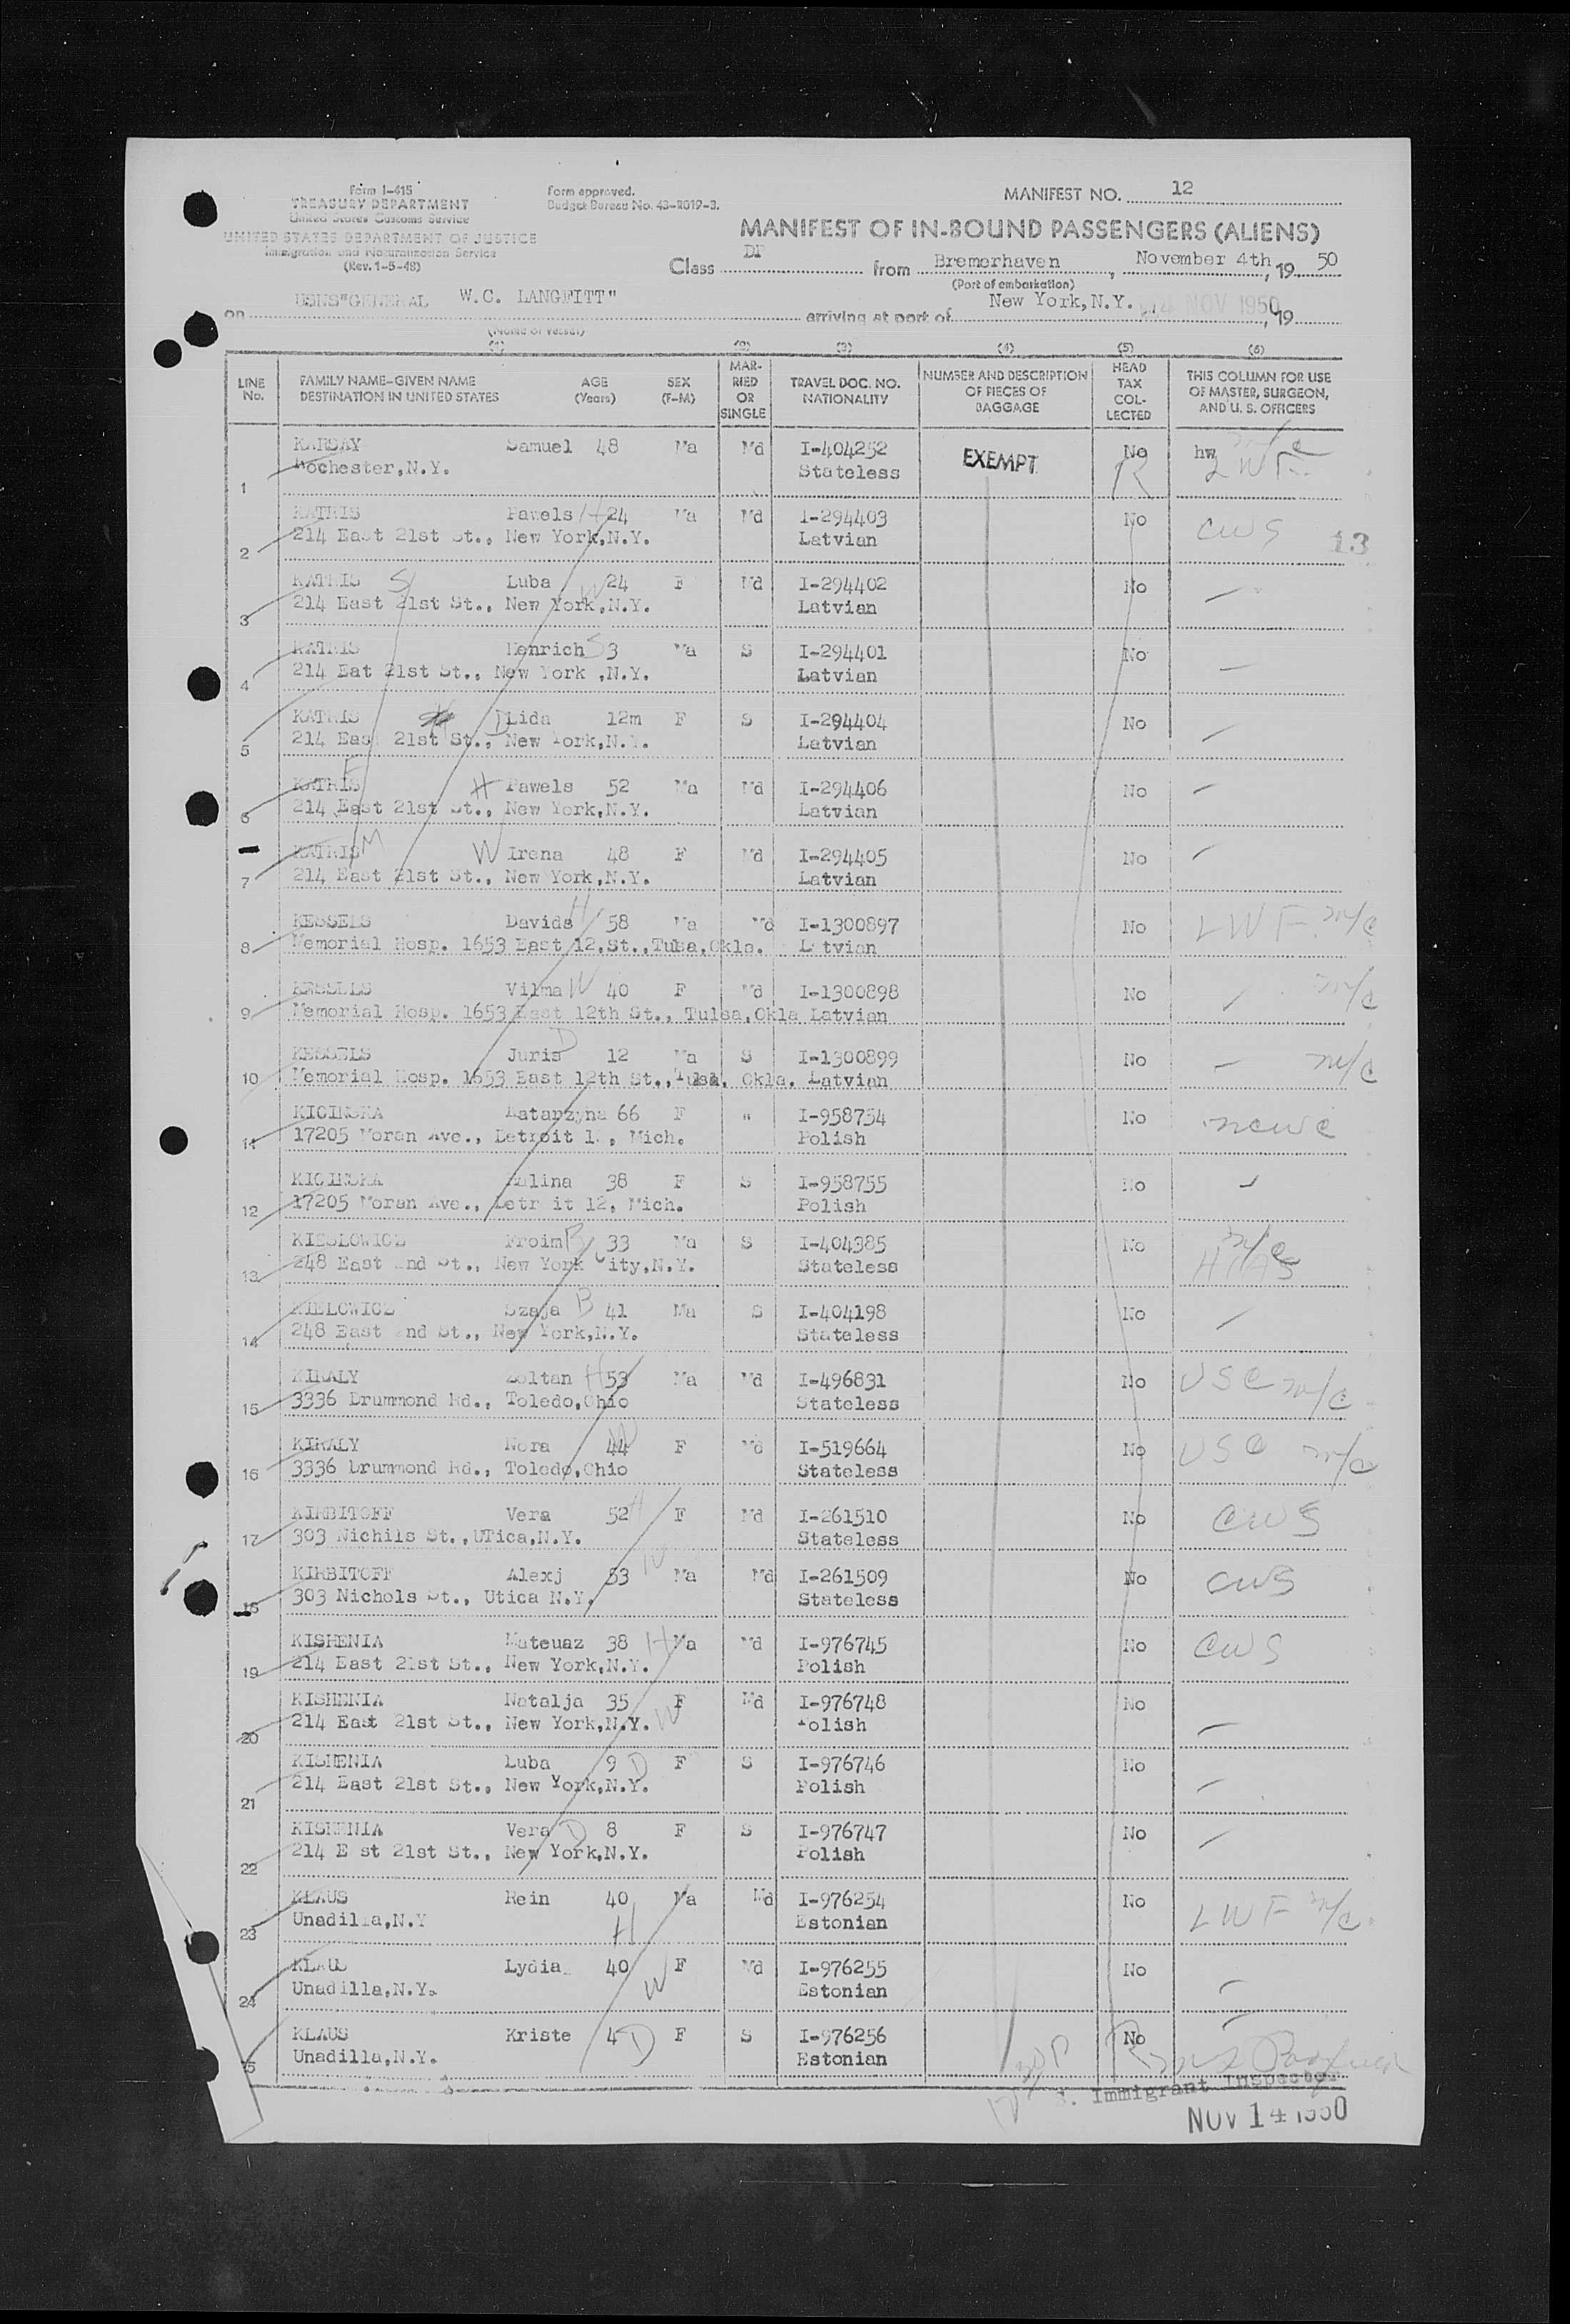 Form I-415
TREASURY DEPARTMENT
United States Customs Service
UNITED STATES DEPARTMENT OF JUSTICE
Immigration and Naturalization Service
(Rev. 1-5-48)
Form approved.
Budget Bureau No. 43-R019-3.
MANIFEST NO. 12
MANIFEST OF IN-BOUND PASSENGERS (ALIENS)
Class DP from Bremerhaven, November 4th, 19 50
(Port of embarkation)
on USNS"GENERAL W.C. LANGFITT" arriving at port of New York, N.Y. 14 NOV 1950, 19
(Name of vessel)
(1) (2) (3) (4) (5) (6)
LINE No. FAMILY NAME-GIVEN NAME DESTINATION IN UNITED STATES AGE (Years) SEX (F-M) MAR-RIED OR SINGLE TRAVEL DOC. NO. NATIONALITY NUMBER AND DESCRIPTION OF PIECES OF BAGGAGE HEAD TAX COL-LECTED THIS COLUMN FOR USE OF MASTER, SURGEON, AND U. S. OFFICERS
KARSAY Samuel 48 Ma Md I-404252 EXEMPT No hw m/c
1 Rochester,N.Y. Stateless R LWF
KATRIS Pawels H 24 Ma Md I-294403 No CWS
2 214 East 21st St., New York,N.Y. Latvian 13
KATRIS S Luba W 24 F Md I-294402 No
3 214 East 21st St., New York,N.Y. Latvian
KATRIS Henrich S 3 Ma S I-294401 No
4 214 Eat 21st St., New York ,N.Y. Latvian
KATRIS D Lida 12m F S I-294404 No
5 214 East 21st St., New York,N.Y. Latvian
KATRIS F H Pawels 52 Ma Md I-294406 No
6 214 East 21st St., New York,N.Y. Latvian
KATRIS M W Irena 48 F Md I-294405 No
7 214 East 21st St., New York,N.Y. Latvian
KESSELS Davids H 58 Ma Md I-1300897 No LWF m/c
8 Memorial Hosp. 1653 East 12.St.,Tulsa,Okla. Latvian
KESSELS Vilma W 40 F Md I-1300898 No m/c
9 Memorial Hosp. 1653 East 12th St., Tulsa,Okla Latvian
KESSELS Juris D 12 Ma S I-1300899 No m/c
10 Memorial Hosp. 1653 East 12th St.,Tulsa, Okla. Latvian
KICINSKA Katarzyna 66 F " I-958754 No NCWC
11 17205 Moran Ave., Detroit 1, Mich. Polish
KICINSKA Halina 38 F S I-958755 No
12 17205 Moran Ave., Detr it 12, Mich. Polish
KIESLOWICZ Froim B 33 Ma S I-404385 No m/c
13 248 East nd St., New York City,N.Y. Stateless HIAS
KIELOWICZ Szaja B 41 Ma S I-404198 No
14 248 East nd St., New York,N.Y. Stateless
KIRALY Zoltan H 53 Ma Md I-496831 No USC m/c
15 3336 Drummond Rd., Toledo,Ohio Stateless
KIRALY Nora W 44 F Md I-519664 No USC m/c
16 3336 Drummond Rd., Toledo,Ohio Stateless
KIRBITOFF Vera 52 H F Md I-261510 No CWS
17 303 Nichils St.,UTica,N.Y. Stateless
KIRBITOFF Alexj 53 W Ma Md I-261509 No CWS
18 303 Nichols St., Utica N.Y. Stateless
KISHENIA Mateuaz 38 H Ma Md I-976745 No CWS
19 214 East 21st St., New York,N.Y. Polish
KISHENIA Natalja 35 F Md I-976748 No
20 214 East 21st St., New York,N.Y. W Polish
KISHENIA Luba 9 D F S I-976746 No
21 214 East 21st St., New York,N.Y. Polish
KISHENIA Vera D 8 F S I-976747 No
22 214 E st 21st St., New York,N.Y. Polish
KLAUS Rein 40 Ma Md I-976254 No LWF m/c
23 Unadilla,N.Y H Estonian
KLAUS Lydia 40 F Md I-976255 No
24 Unadilla,N.Y. W Estonian
KLAUS Kriste 4 D F S I-976256 No
25 Unadilla,N.Y. Estonian
Immigrant Inspector
NOV 14 1950